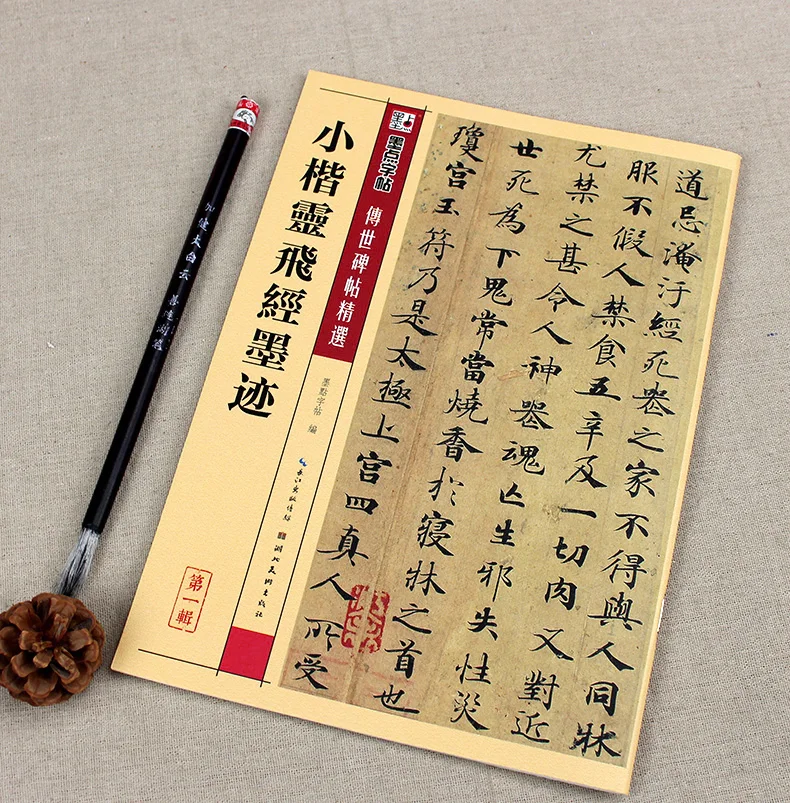 小楷靈飛經墨迹
墨点字帖
傳世碑帖精選
墨點字帖 編
长江出版传媒
湖北美术出版社
第一輯
道忌淹汙經死喪之家不得與人同牀
服不假人禁食五辛及一切肉又對近
尤禁之甚令人神喪魂亡生邪失性災
世死為下鬼常當燒香於寢牀之首也
瓊宮玉符乃是太極上宮四真人所受
加健大白云 善琏湖笔